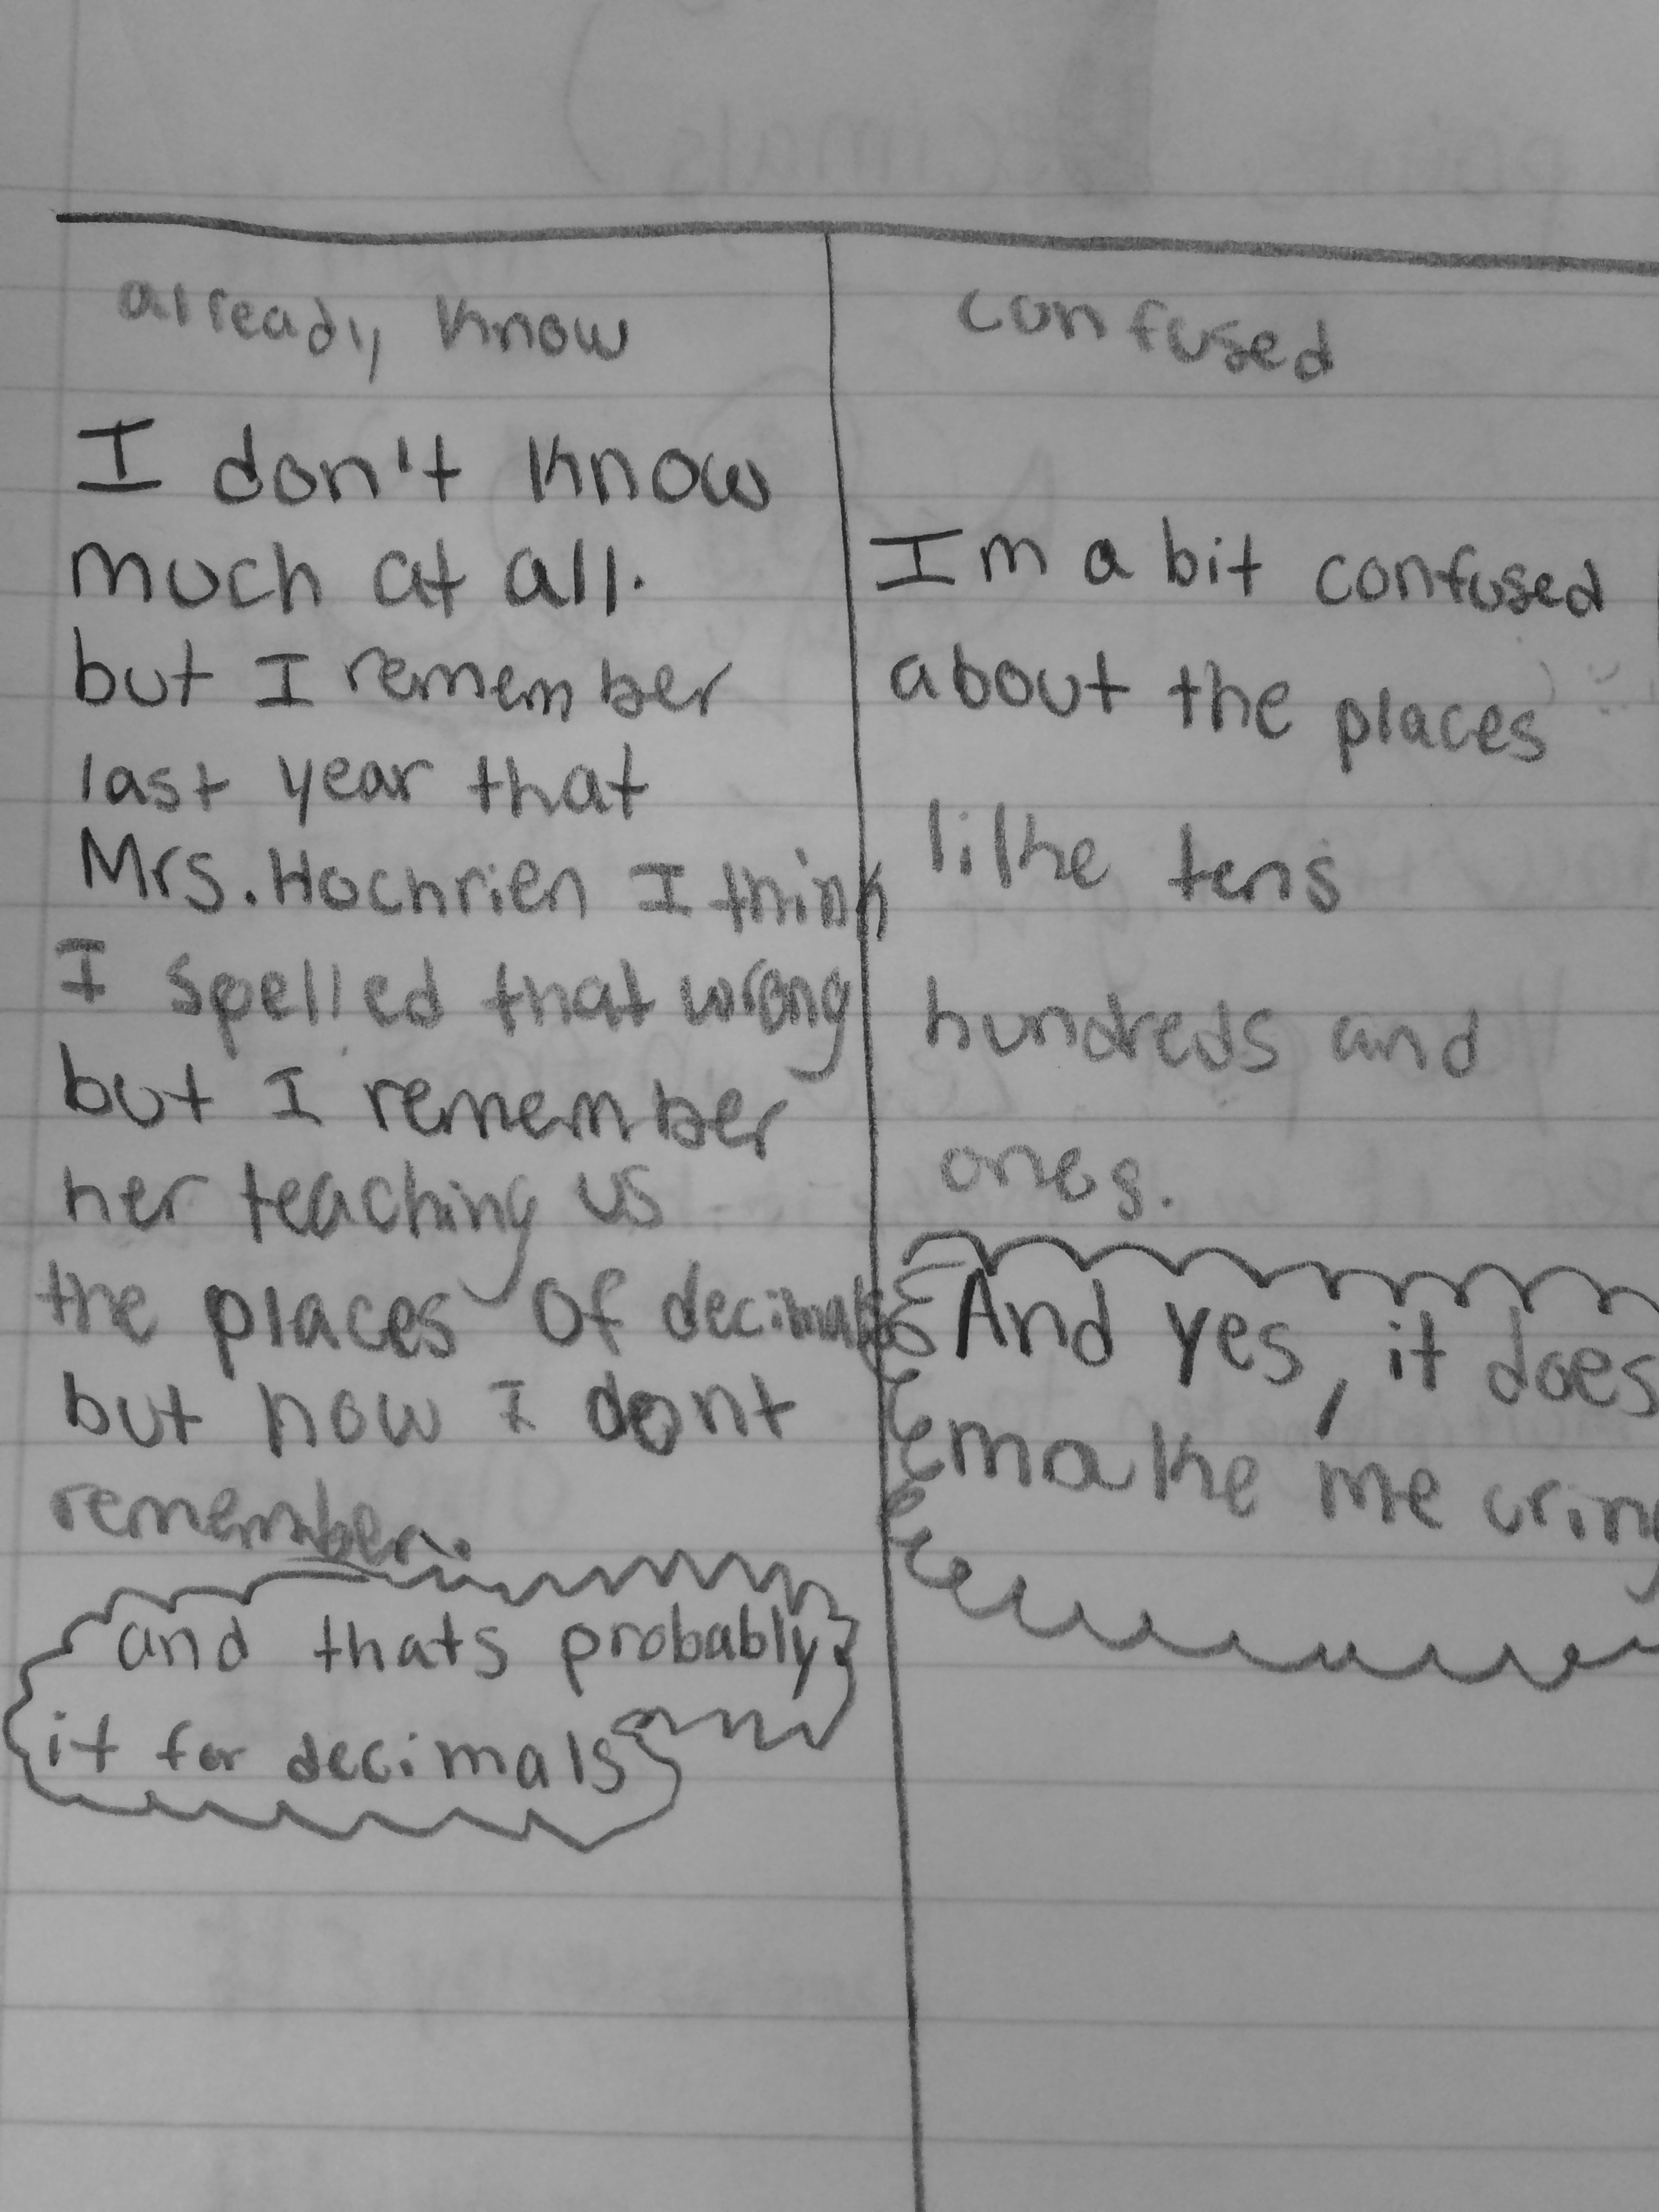 already know
I don't know
much at all.
but I remember
last year that
Mrs. Hochrien I think
I spelled that wrong
but I remember
her teaching us
the places of decimals
but now I dont
remember.
and thats probably
it for decimals
confused
Im a bit confused
about the places
like tens
hundreds and
ones.
And yes, it does
make me